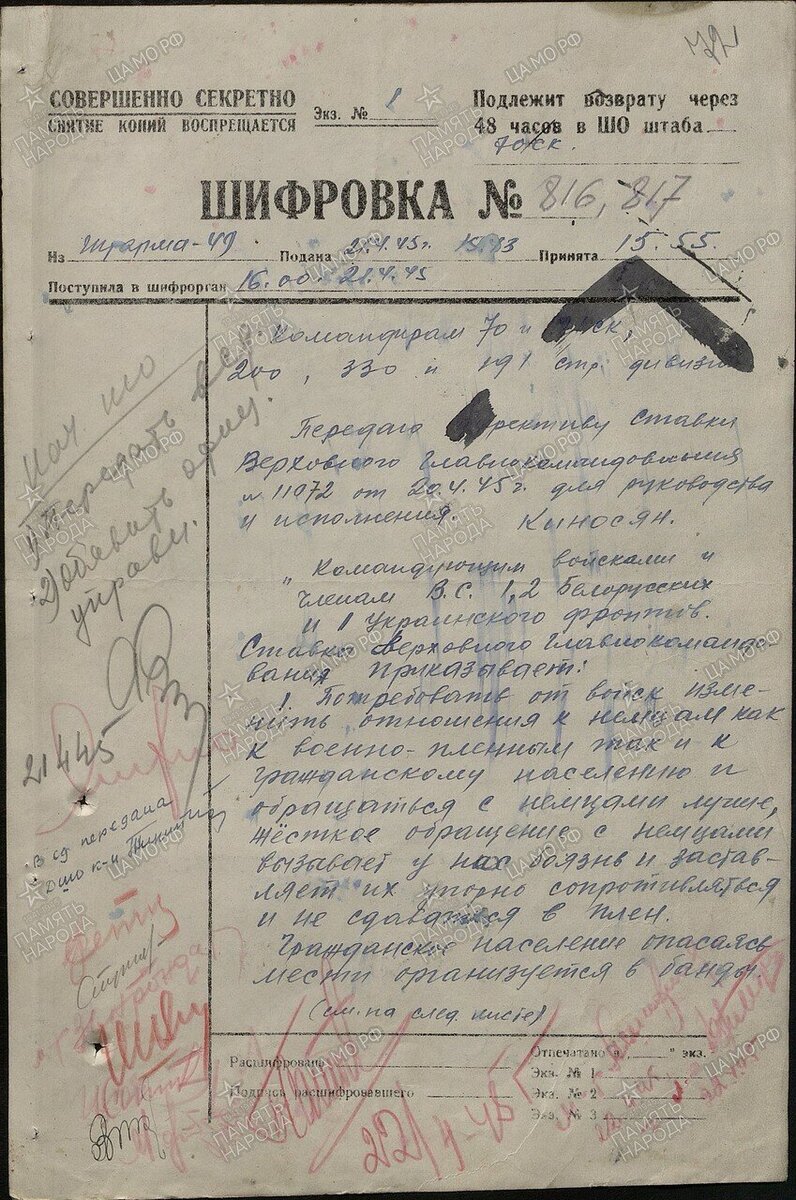 72
СОВЕРШЕННО СЕКРЕТНО
СНЯТИЕ КОПИЙ ВОСПРЕЩАЕТСЯ
Экз. № 1
Подлежит возврату через
48 часов в ШО штаба
70ск.
ШИФРОВКА № 816, 817
Из Штарма-49 Подана 21.4.45г. 15.33 Принята 15.55.
Поступила в шифрорган 16.00. 21.4.45
Командирам 70 и
200, 330 и 191 стр. дивизий
Передаю директиву Ставки
Верховного Главнокомандования
№ 11072 от 20.4.45г. для руководства
и исполнения. Киносян.
" Командующим войсками и
членам В.С. 1, 2 Белорусских
и 1 Украинского фронтов.
Ставка Верховного Главнокомандо-
вания приказывает:
1. Потребовать от войск изме-
нить отношения к немцам как
к военно-пленным так и к
гражданскому населению и
обращаться с немцами лучше,
жёсткое обращение с немцами
вызывает у них боязнь и застав-
ляет их упорно сопротивляться
и не сдаваться в плен.
Гражданское население опасаясь
мести организуется в банды.
(см. на след. листе)
Нач. ШО
1) Передать
2) Добавить
управл.
21 4 45
передана
22/4-45
Расшифровано
Подпись расшифровавшего
Отпечатано в " " экз.
Экз. № 1
Экз. № 2
Экз. № 3
ПАМЯТЬ НАРОДА
ЦАМО РФ